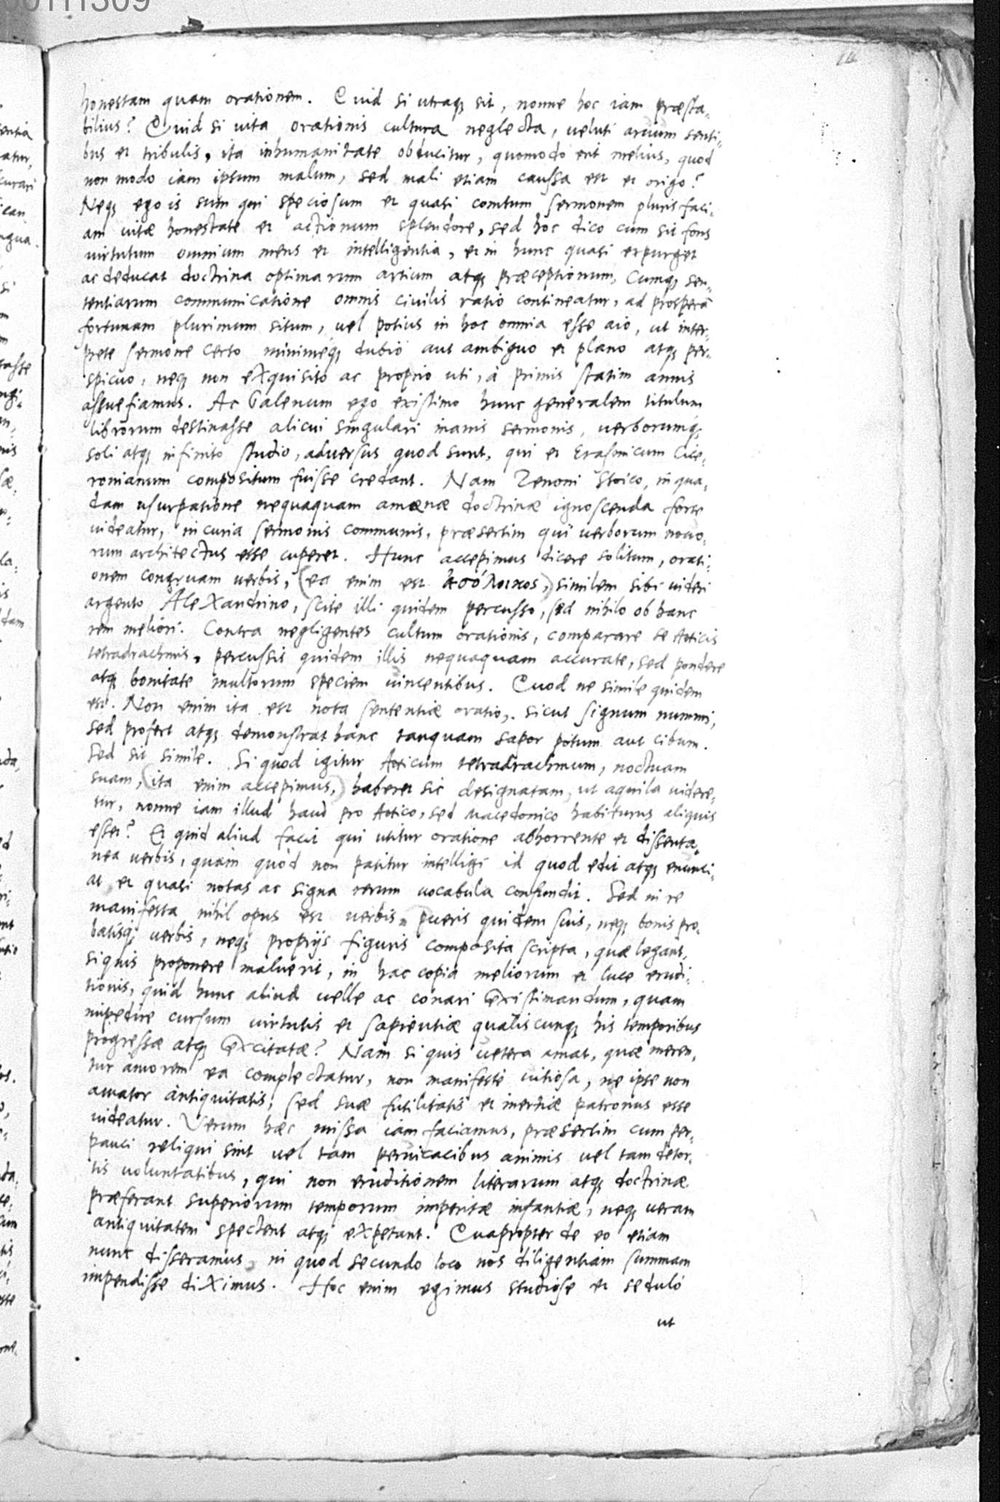 00111309
14
honestam quam orationem. Quid si utraq; sit, nonne hoc iam præsta-
bilius? Quid si vita orationis cultura neglecta, veluti arvum senti-
bus et tribulis, ita inhumanitate obducitur, quomodo erit melius, quod
non modo iam ipsum malum, sed mali etiam caussa est et origo?
Neq; ego is sum qui speciosum et quasi comtum sermonem pluris faci-
am vitæ honestate et actionum splendore, sed hoc dico cum sit fons
virtutum omnium mens et intelligentia, et in hunc quasi expurget
ac deducat doctrina optimarum artium atq; præceptionum, Cumq; sen-
tentiarum communicatione omnis civilis ratio contineatur, ad prosperā
fortunam plurimum situm, vel potius in hoc omnia esse aio, ut inter-
prete sermone certo minimeq; dubio aut ambiguo et plano atq; per-
spicuo, neq; non exquisito ac proprio uti, à primis statim annis
assuefiamus. Ac Galenum ego existimo hunc generalem titulum
librorum destinasse alicui singulari inanis sermonis, verborumq;
soli atq; infinito studio, adversus quod sunt, qui et Erasmicum Cice-
ronianum compositum fuisse credant. Nam Zenoni Stoico, in qua-
dam usurpatione nequaquam amœnæ doctrinæ ignoscenda forte
videatur, incuria sermonis communis, præsertim qui verborum novo-
rum architectus esse cuperet. Hunc accepimus dicere solitum, orati-
onem congruam verbis, (ea enim est ἀσόλοικος,) similem sibi videri
argento Alexandrino, scite illi quidem percusso, sed nihilo ob hanc
rem meliori. Contra negligentes cultum orationis, comparare se Atticis
tetradrachmis, percussis quidem illis nequaquam accurate, sed pondere
atq; bonitate multorum speciem vincentibus. Quod ne simile quidem
est. Non enim ita est nota sententiæ oratio, sicut signum nummi,
sed profert atq; demonstrat hanc tanquam sapor potum aut cibum.
Sed sit simile. Si quod igitur Atticum tetradrachmum, noctuam
suam, (ita enim accepimus,) haberet sic designatam, ut aquila videre-
tur, nonne iam illud haud pro Attico, sed Macedonico habiturus aliquis
esset? Et quid aliud facit qui utitur oratione abhorrente et dissenta-
nea verbis, quam quòd non patitur intelligi id quod edit atq; enunci-
at, et quasi notas ac signa rerum vocabula confundit. Sed in re
manifesta nihil opus est verbis. pueris quidem scis, neq; bonis pro-
batisq; verbis, neq; proprijs figuris composita scripta, quæ legant,
siquis proponere maluerit, in hac copia meliorum et luce erudi-
tionis, quid hunc aliud velle ac conari existimandum, quam
impedire cursum virtutis et sapientiæ qualiscunq; his temporibus
progressæ atq; excitatæ? Nam si quis vetera amat, quæ meren-
tur amorem ea complectatur, non manifestè vitiosa, ne ipse non
amator antiquitatis, sed suæ futilitatis et inertiæ patronus esse
videatur. Verum hæc missa iam faciamus, præsertim cum per-
pauci reliqui sint vel tam pervicacibus animis vel tam detor-
tis voluntatibus, qui non eruditionem literarum atq; doctrinæ
præferant superiorum temporum imperitæ infantiæ, neq; veram
antiquitatem spectent atq; expetant. Quapropter de eo etiam
nunc disseramus, in quod secundo loco nos diligentiam summam
impendisse diximus. Hoc enim egimus studiose et sedulò
ut